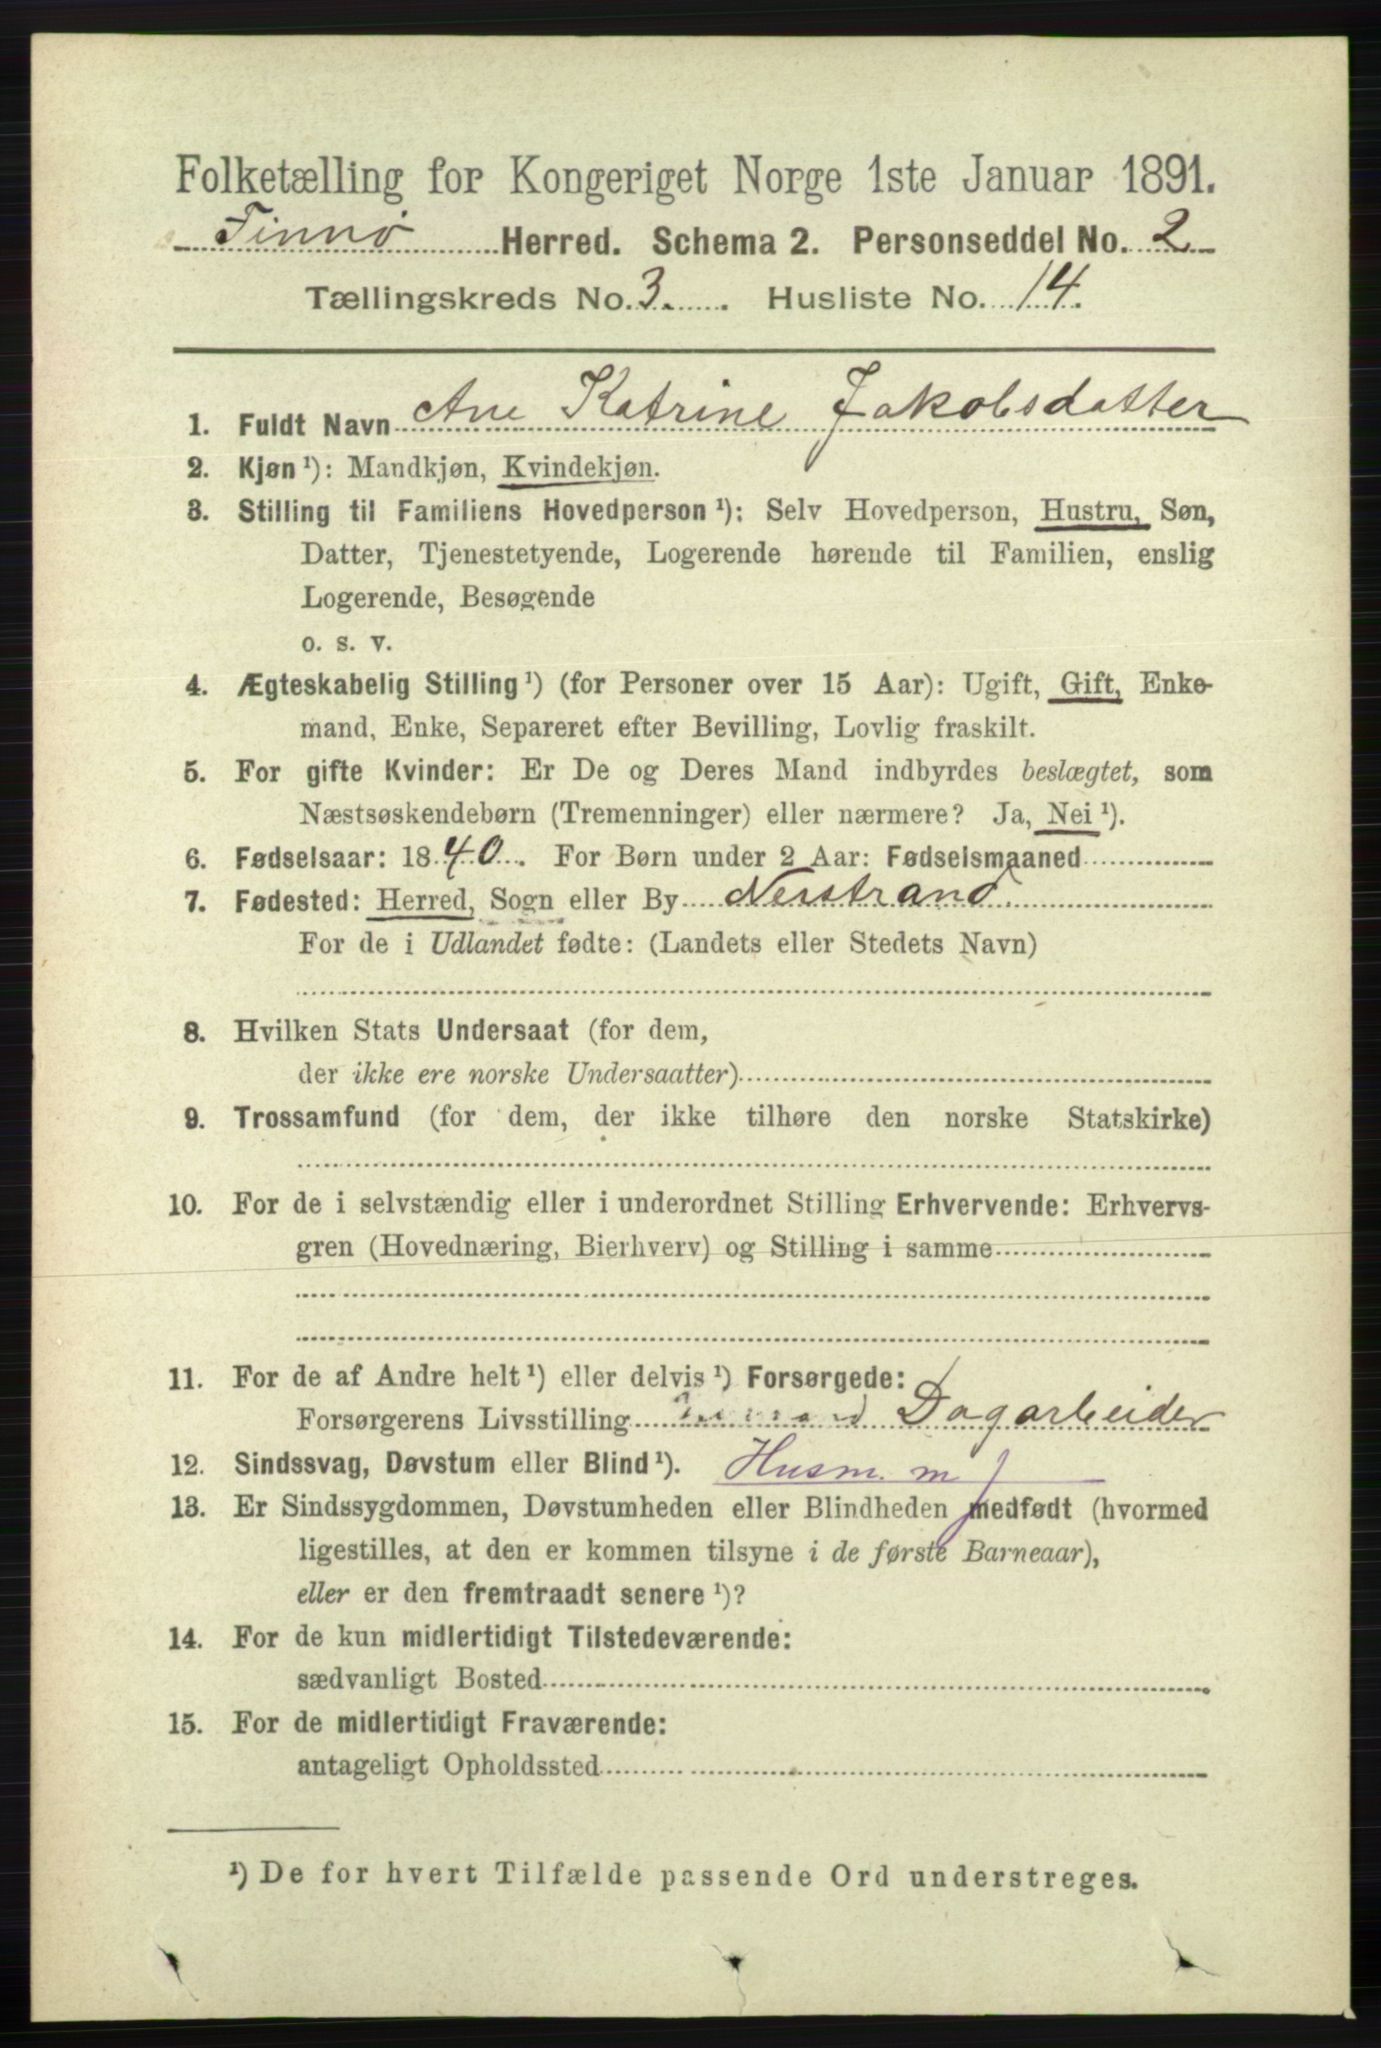 Folketælling for Kongeriget Norge 1ste Januar 1891.
Finnø Herred. Schema 2. Personseddel No. 2
Tællingskreds No. 3. Husliste No. 14.
1. Fuldt Navn Ane Katrine Jakobsdatter
2. Kjøn ¹): Mandkjøn, Kvindekjøn.
3. Stilling til Familiens Hovedperson ¹): Selv Hovedperson, Hustru, Søn,
Datter, Tjenestetyende, Logerende hørende til Familien, enslig
Logerende, Besøgende
o. s. v.
4. Ægteskabelig Stilling ¹) (for Personer over 15 Aar): Ugift, Gift, Enke-
mand, Enke, Separeret efter Bevilling, Lovlig fraskilt.
5. For gifte Kvinder: Er De og Deres Mand indbyrdes beslægtet, som
Næstsøskendebørn (Tremenninger) eller nærmere? Ja, Nei ¹).
6. Fødselsaar: 1840. For Børn under 2 Aar: Fødselsmaaned
7. Fødested: Herred, Sogn eller By Nerstrand.
For de i Udlandet fødte: (Landets eller Stedets Navn)
8. Hvilken Stats Undersaat (for dem,
der ikke ere norske Undersaatter)
9. Trossamfund (for dem, der ikke tilhøre den norske Statskirke)
10. For de i selvstændig eller i underordnet Stilling Erhvervende: Erhvervs-
gren (Hovednæring, Bierhverv) og Stilling i samme
11. For de af Andre helt ¹) eller delvis ¹) Forsørgede:
Forsørgerens Livsstilling Dagarbeider
12. Sindssvag, Døvstum eller Blind ¹). Husm. m j
13. Er Sindssygdommen, Døvstumheden eller Blindheden medfødt (hvormed
ligestilles, at den er kommen tilsyne i de første Barneaar),
eller er den fremtraadt senere ¹)?
14. For de kun midlertidigt Tilstedeværende:
sædvanligt Bosted
15. For de midlertidigt Fraværende:
antageligt Opholdssted
¹) De for hvert Tilfælde passende Ord understreges.